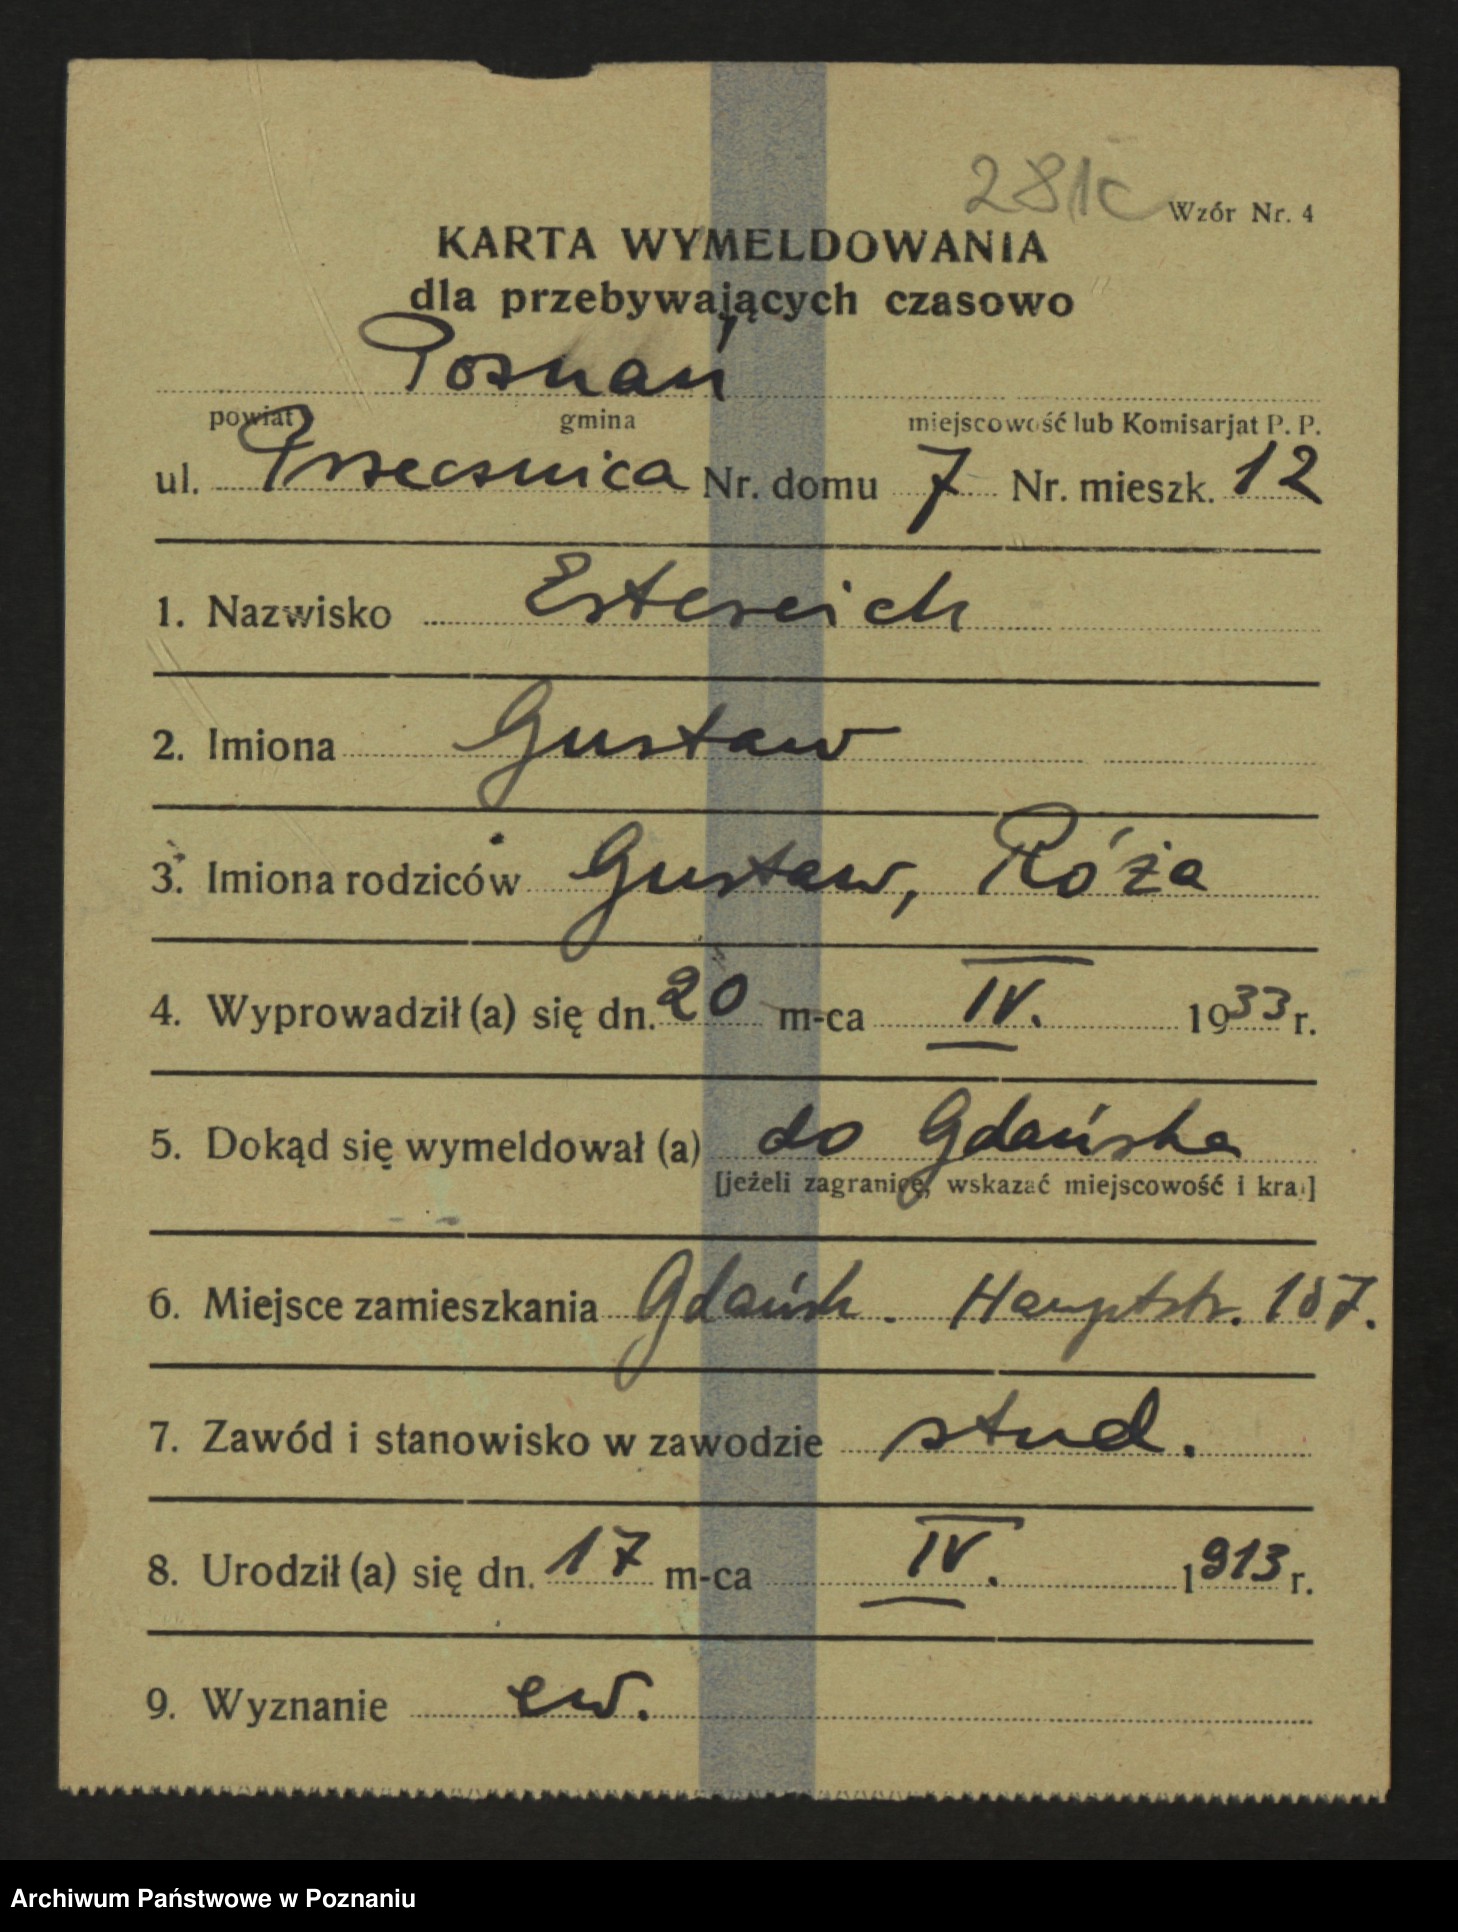 281c
Wzór Nr. 4
KARTA WYMELDOWANIA
dla przebywających czasowo
Poznań
powiat gmina miejscowość lub Komisarjat P. P.
ul. Przecznica Nr. domu 7 Nr. mieszk. 12
1. Nazwisko Estereich
2. Imiona Gustaw
3. Imiona rodziców Gustaw, Róża
4. Wyprowadził (a) się dn. 20 m-ca IV. 1933 r.
5. Dokąd się wymeldował (a) do Gdańska
[jeżeli zagranicę, wskazać miejscowość i kraj]
6. Miejsce zamieszkania Gdańsk. Hauptstr. 107.
7. Zawód i stanowisko w zawodzie stud.
8. Urodził (a) się dn. 17 m-ca IV. 1913 r.
9. Wyznanie ew.
Archiwum Państwowe w Poznaniu